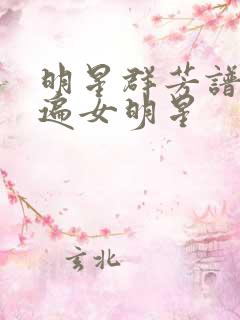 明星群芳譜
遍女明星
玄北